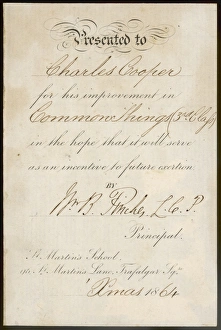 Presented to
Charles Cooper
for his improvement in
Common Things 3rd Class
in the hope that it will serve
as an incentive to future exertion
BY
Wm B. L.C.P.
Principal.
St. Martin's School,
St. Martins Lane, Trafalgar Sqre
Xmas 1864